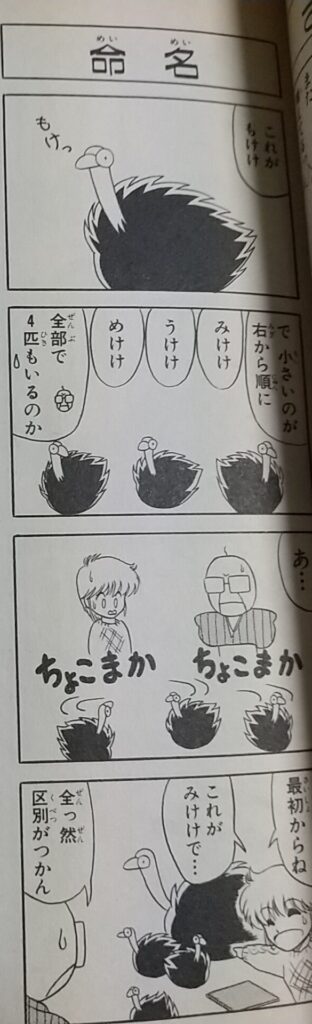 命名
めい
めい
これが
もけけ
もけっ
で 小さいのが
右から順に
みけけ
うけけ
めけけ
全部で
4匹もいるのか
あ…
ちょこまか
ちょこまか
最初からね
これが
みけけで…
全っ然
区別がつかん